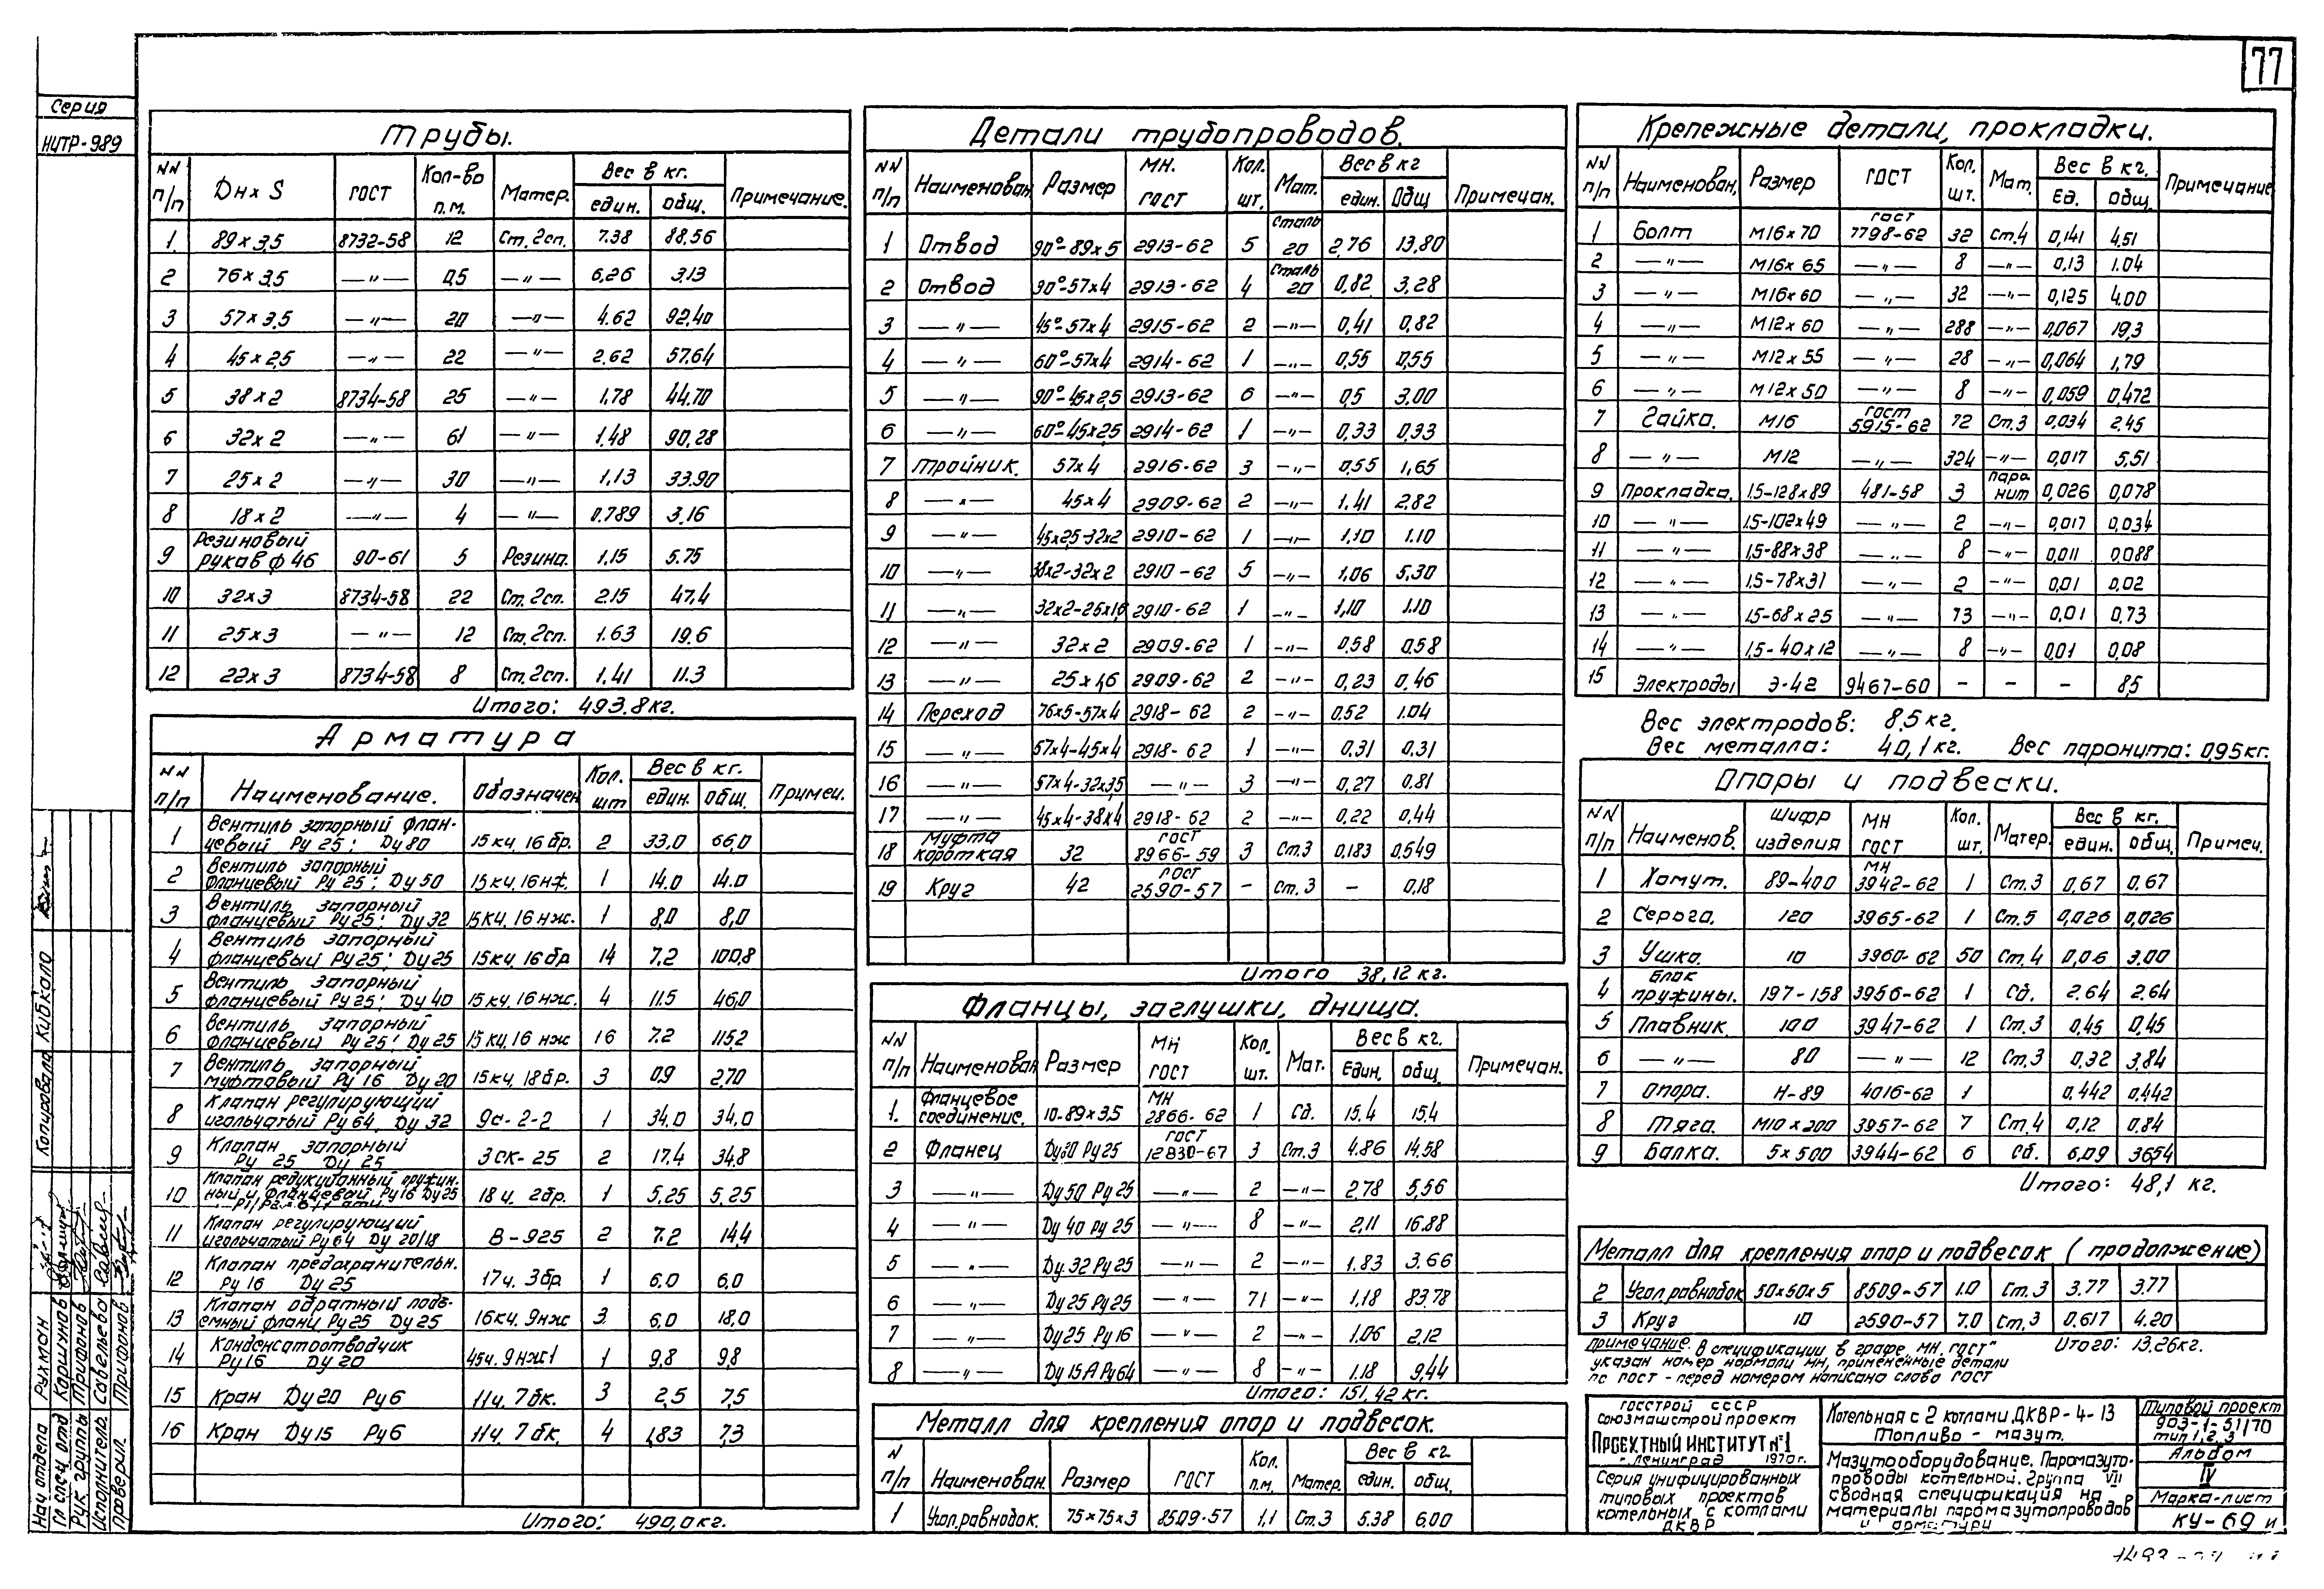 77
Серия
НИТР-989
Трубы.
NN п/п | Дн х S | ГОСТ | Кол-во п.м. | Матер. | Вес в кг. един. | общ. | Примечание.
1. | 89 х 3,5 | 8732-58 | 12 | Ст. 2сп. | 7.38 | 88.56
2 | 76 х 3,5 | —"— | 0,5 | —"— | 6,26 | 3.13
3 | 57 х 3,5 | —"— | 20 | —"— | 4.62 | 92.40
4 | 45 х 2,5 | —"— | 22 | —"— | 2.62 | 57.64
5 | 38 х 2 | 8734-58 | 25 | —"— | 1,78 | 44.70
6 | 32 х 2 | —"— | 61 | —"— | 1.48 | 90,28
7 | 25 х 2 | —"— | 30 | —"— | 1,13 | 33.90
8 | 18 х 2 | —"— | 4 | —"— | 0.789 | 3.16
9 | Резиновый рукав ф 46 | 90-61 | 5 | Резина. | 1,15 | 5.75
10 | 32х3 | 8734-58 | 22 | Ст. 2сп. | 2.15 | 47.4
11 | 25х3 | —"— | 12 | Ст. 2сп. | 1.63 | 19.6
12 | 22х3 | 8734-58 | 8 | Ст. 2сп. | 1.41 | 11.3
Итого: 493.8кг.
Арматура
NN п/п | Наименование. | Обозначен | Кол. шт | Вес в кг. един. | общ. | Примеч.
1 | Вентиль запорный фланцевый Ру 25; Ду 80 | 15 кч. 16 бр. | 2 | 33,0 | 66,0
2 | Вентиль запорный фланцевый Ру 25; Ду 50 | 15 кч. 16 нж. | 1 | 14.0 | 14.0
3 | Вентиль запорный фланцевый Ру 25; Ду 32 | 15 кч. 16 нж. | 1 | 8,0 | 8,0
4 | Вентиль запорный фланцевый Ру 25; Ду 25 | 15 кч. 16 бр | 14 | 7.2 | 100,8
5 | Вентиль запорный фланцевый Ру 25; Ду 40 | 15 кч. 16 нж. | 4 | 11.5 | 46,0
6 | Вентиль запорный фланцевый Ру 25; Ду 25 | 15 кч. 16 нж | 16 | 7.2 | 115,2
7 | Вентиль запорный муфтовый Ру 16 Ду 20 | 15 кч. 18 бр. | 3 | 0,9 | 2.70
8 | Клапан регулирующий игольчатый Ру 64, Ду 32 | 9с-2-2 | 1 | 34,0 | 34,0
9 | Клапан запорный Ру 25 Ду 25 | ЗСК-25 | 2 | 17.4 | 34,8
10 | Клапан редукционный пружинный фланцевой Ру 16 Ду 25 | 18 ч. 2бр. | 1 | 5,25 | 5.25
11 | Клапан регулирующий игольчатый Ру 64 Ду 20/18 | В-925 | 2 | 7.2 | 14,4
12 | Клапан предохранительн. Ру 16 Ду 25 | 17 ч. 3 бр | 1 | 6.0 | 6,0
13 | Клапан обратный подъемный фланц. Ру 25 Ду 25 | 16 кч. 9 нж | 3 | 6,0 | 18,0
14 | Конденсатоотводчик Ру 16 Ду 20 | 45 ч. 9 нж 1 | 1 | 9,8 | 9,8
15 | Кран Ду 20 Ру 6 | 11 ч. 7 бк. | 3 | 2,5 | 7,5
16 | Кран Ду 15 Ру 6 | 11 ч. 7 бк. | 4 | 1,83 | 7,3
Итого: 490,0 кг.
Детали трубопроводов.
NN п/п | Наименован. | Размер | МН. ГОСТ | Кол. шт. | Мат. | Вес в кг един. | Общ | Примечан.
1 | Отвод | 90°-89х5 | 2913-62 | 5 | Сталь 20 | 2,76 | 13,80
2 | Отвод | 90°-57х4 | 2913-62 | 4 | Сталь 20 | 0,82 | 3.28
3 | —"— | 45°-57х4 | 2915-62 | 2 | —"— | 0,41 | 0,82
4 | —"— | 60°-57х4 | 2914-62 | 1 | —"— | 0,55 | 0,55
5 | —"— | 90°-45х2,5 | 2913-62 | 6 | —"— | 0,5 | 3.00
6 | —"— | 60°-45х2,5 | 2914-62 | 1 | —"— | 0,33 | 0,33
7 | Тройник. | 57х4 | 2916-62 | 3 | —"— | 0,55 | 1,65
8 | —"— | 45х4 | 2909-62 | 2 | —"— | 1.41 | 2.82
9 | —"— | 45х2,5-32х2 | 2910-62 | 1 | —"— | 1,10 | 1.10
10 | —"— | 38х2-32х2 | 2910-62 | 5 | —"— | 1,06 | 5,30
11 | —"— | 32х2-25х1,6 | 2910-62 | 1 | —"— | 1,10 | 1.10
12 | —"— | 32х2 | 2909-62 | 1 | —"— | 0,58 | 0,58
13 | —"— | 25х1,6 | 2909-62 | 2 | —"— | 0,23 | 0,46
14 | Переход | 76х5-57х4 | 2918-62 | 2 | —"— | 0.52 | 1.04
15 | —"— | 57х4-45х4 | 2918-62 | 1 | —"— | 0.31 | 0,31
16 | —"— | 57х4-32х3,5 | —"— | 3 | —"— | 0,27 | 0,81
17 | —"— | 45х4-38х4 | 2918-62 | 2 | —"— | 0,22 | 0,44
18 | Муфта короткая | 32 | ГОСТ 8966-59 | 3 | Ст.3 | 0,183 | 0,549
19 | Круг | 42 | ГОСТ 2590-57 | - | Ст. 3 | - | 0,18
Итого 38,12 кг.
Фланцы, заглушки, днища.
NN п/п | Наименован. | Размер | МН ГОСТ | Кол. шт. | Мат. | Вес в кг. Един. | общ. | Примечан.
1. | Фланцевое соединение. | 10-89х3.5 | МН 2866-62 | 1 | Сб. | 15.4 | 15.4
2 | Фланец | Ду80 Ру 25 | ГОСТ 12830-67 | 3 | Ст.3 | 4.86 | 14.58
3 | —"— | Ду 50 Ру 25 | —"— | 2 | —"— | 2,78 | 5,56
4 | —"— | Ду 40 Ру 25 | —"— | 8 | —"— | 2,11 | 16.88
5 | —"— | Ду 32 Ру 25 | —"— | 2 | —"— | 1.83 | 3.66
6 | —"— | Ду 25 Ру 25 | —"— | 71 | —"— | 1,18 | 83.78
7 | —"— | Ду 25 Ру 16 | —"— | 2 | —"— | 1.06 | 2.12
8 | —"— | Ду 15 А Ру 64 | —"— | 8 | —"— | 1.18 | 9,44
Итого: 151,42 кг.
Металл для крепления опор и подвесок.
N п/п | Наименован. | Размер | ГОСТ | Кол. п.м. | Матер. | Вес в кг един. | общ.
1 | Угол.равнобок. | 75х75х3 | 8509-57 | 1,1 | Ст. 3 | 5.38 | 6.00
Крепежные детали, прокладки.
NN п/п | Наименован. | Размер | ГОСТ | Кол. шт. | Мат. | Вес в кг. Ед. | Общ. | Примечание
1 | Болт | М16х70 | ГОСТ 7798-62 | 32 | Ст.4 | 0,141 | 4,51
2 | —"— | М16х65 | —"— | 8 | —"— | 0,13 | 1.04
3 | —"— | М16х60 | —"— | 32 | —"— | 0,125 | 4.00
4 | —"— | М12х60 | —"— | 288 | —"— | 0,067 | 19,3
5 | —"— | М12х55 | —"— | 28 | —"— | 0,064 | 1,79
6 | —"— | М12х50 | —"— | 8 | —"— | 0,059 | 0,472
7 | Гайка. | М16 | ГОСТ 5915-62 | 72 | Ст.3 | 0,034 | 2.45
8 | —"— | М12 | —"— | 324 | —"— | 0,017 | 5.51
9 | Прокладка. | 1,5-128х89 | 481-58 | 3 | паронит | 0,026 | 0,078
10 | —"— | 1,5-102х49 | —"— | 2 | —"— | 0,017 | 0,034
11 | —"— | 1,5-88х38 | —"— | 8 | —"— | 0,011 | 0,088
12 | —"— | 1,5-78х31 | —"— | 2 | —"— | 0,01 | 0,02
13 | —"— | 1,5-68х25 | —"— | 73 | —"— | 0,01 | 0,73
14 | —"— | 1,5-40х12 | —"— | 8 | —"— | 0,01 | 0,08
15 | Электроды | Э-42 | 9467-60 | - | - | - | 8,5
Вес электродов: 8.5 кг.
Вес металла: 40,1 кг. Вес паронита: 0,95 кг.
Опоры и подвески.
NN п/п | Наименов. | Шифр изделия | МН ГОСТ | Кол. шт. | Матер. | Вес в кг. един. | общ. | Примеч.
1 | Хомут. | 89-400 | МН 3942-62 | 1 | Ст.3 | 0,67 | 0.67
2 | Серьга. | 120 | 3965-62 | 1 | Ст.5 | 0,026 | 0,026
3 | Ушко. | 10 | 3960-62 | 50 | Ст.4 | 0,06 | 3.00
4 | Блок пружины. | 197-158 | 3956-62 | 1 | Сб. | 2.64 | 2.64
5 | Плавник. | 100 | 3947-62 | 1 | Ст.3 | 0,45 | 0,45
6 | —"— | 80 | —"— | 12 | Ст.3 | 0.32 | 3,84
7 | Опора. | Н-89 | 4016-62 | 1 | 0,442 | 0,442
8 | Тяга. | М10х200 | 3957-62 | 7 | Ст.4 | 0,12 | 0.84
9 | Балка. | 5х500 | 3944-62 | 6 | Сб. | 6,09 | 36,54
Итого: 48,1 кг.
Металл для крепления опор и подвесок (продолжение)
2 | Угол.равнобок | 50х50х5 | 8509-57 | 1.0 | Ст. 3 | 3.77 | 3.77
3 | Круг | 10 | 2590-57 | 7.0 | Ст.3 | 0.617 | 4.20
Итого: 13,26кг.
Примечание. В спецификации в графе „МН, ГОСТ"
указан номер нормали МН, применённые детали
по ГОСТ - перед номером написано слово ГОСТ
Госстрой СССР
Союзмашстройпроект
Проектный институт №1
г. Ленинград 1970г.
Серия унифицированных
типовых проектов
котельных с котлами
ДКВР
Котельная с 2 котлами ДКВР-4-13
Топливо - мазут.
Мазутооборудование. Паромазуто-
проводы котельной. Группа VII
Сводная спецификация на
материалы паромазутопроводов
и арматуры
Типовой проект
903-1-51/70
тип 1,2,3
Альбом
IV
Марка-лист
КУ-69 и
Копировала Кубкало
Нач отдела Рухман
Гл спец. отд Коршунов
Рук. группы Трифонов
Исполнитель Савельева
Проверил. Трифонов